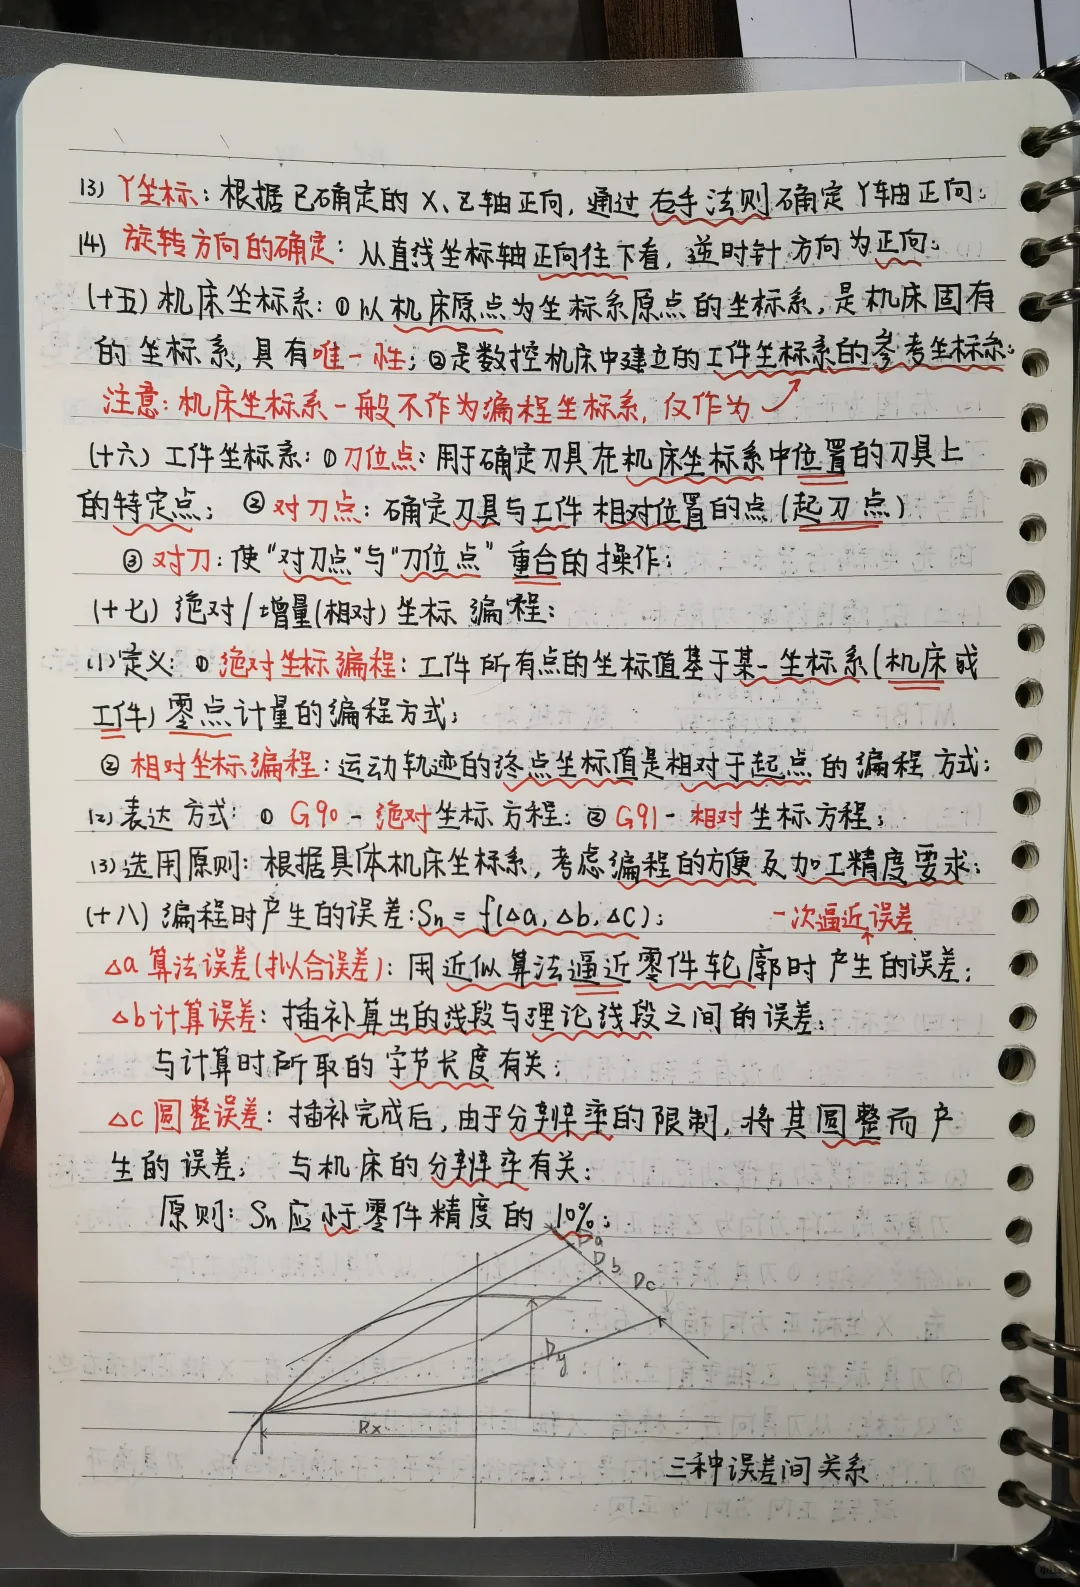 (3) Y坐标：根据已确定的X、Z轴正向，通过右手法则确定Y轴正向；
(4) 旋转方向的确定：从直线坐标轴正向往下看，逆时针方向为正向；
(十五) 机床坐标系：①以机床原点为坐标系原点的坐标系，是机床固有
的坐标系，具有唯一性；②是数控机床中建立的工件坐标系的参考坐标系；
注意：机床坐标系一般不作为编程坐标系，仅作为
(十六) 工件坐标系：①刀位点：用于确定刀具在机床坐标系中位置的刀具上
的特定点；②对刀点：确定刀具与工件相对位置的点(起刀点)
③对刀：使“对刀点”与“刀位点”重合的操作；
(十七) 绝对/增量(相对)坐标编程：
(1)定义：①绝对坐标编程：工件所有点的坐标值基于某一坐标系(机床或
工件)零点计量的编程方式；
②相对坐标编程：运动轨迹的终点坐标值是相对于起点的编程方式；
(2)表达方式：①G90-绝对坐标方程；②G91-相对坐标方程；
(3)选用原则：根据具体机床坐标系，考虑编程的方便及加工精度要求；
(十八) 编程时产生的误差：Sn=f(△a,△b,△c)；
一次逼近误差
△a算法误差(拟合误差)：用近似算法逼近零件轮廓时产生的误差；
△b计算误差：插补算出的线段与理论线段之间的误差；
与计算时所取的字节长度有关；
△c圆整误差：插补完成后，由于分辨率的限制，将其圆整而产
生的误差；与机床的分辨率有关；
原则：Sn应小于零件精度的10%；
Da
Db
Dc
Dy
Dx
三种误差间关系